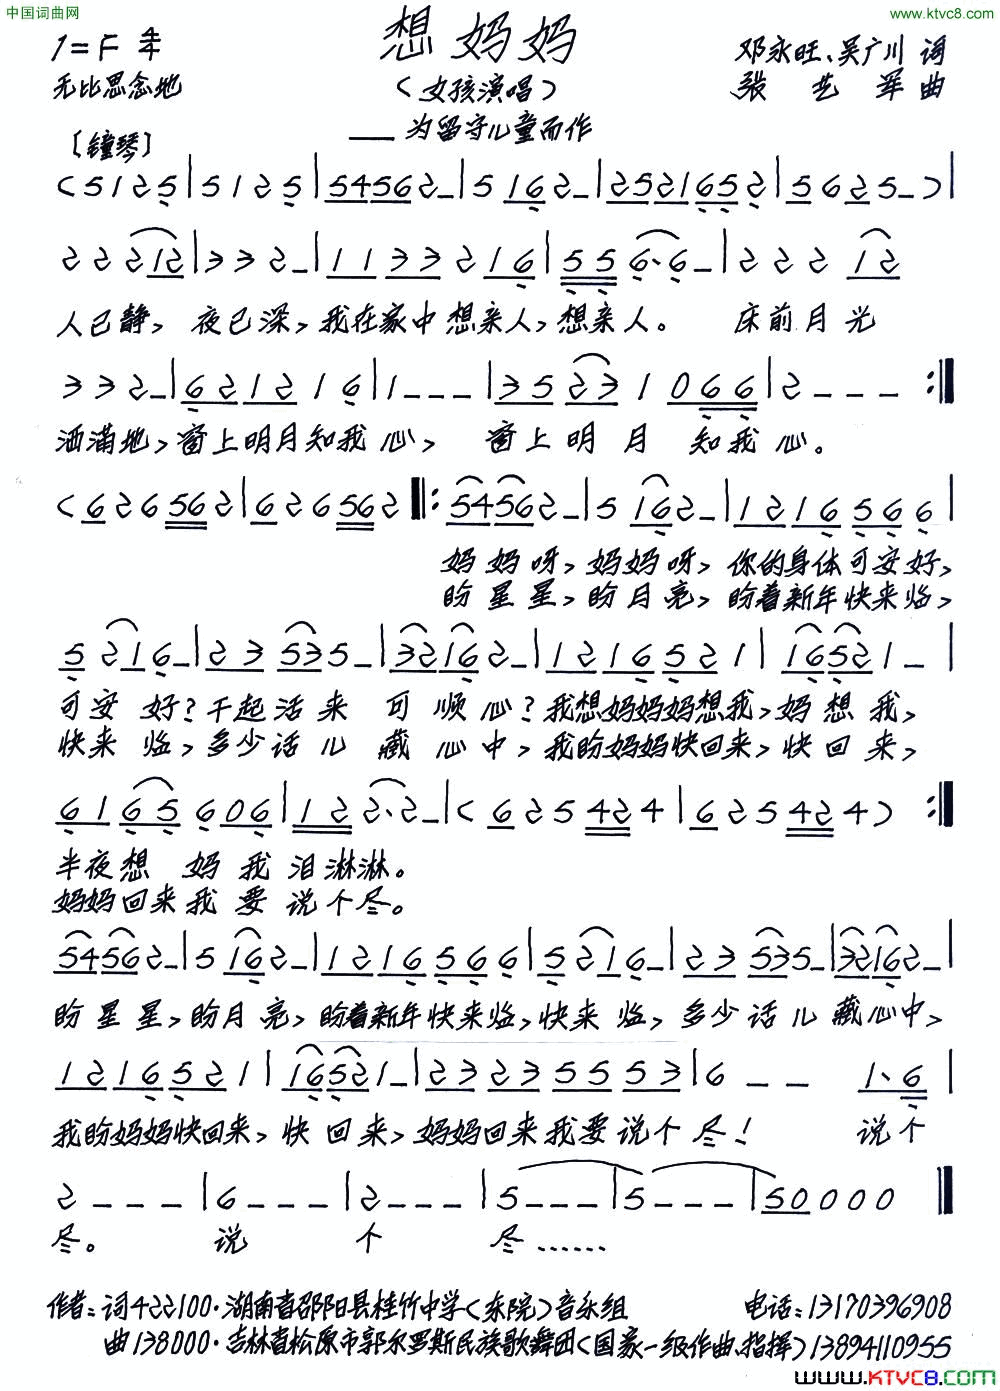 中国词曲网
www.ktvc8.com
想妈妈
1=F 4/4
无比思念地
(女孩演唱)
邓永旺、吴广川 词
张艺军 曲
——为留守儿童而作
[钟琴]
(5 1 2 5|5 1 2 5|5 4 5 6 2 –|5 1 6 2 –|2 5 2 1 6 5 2|5 6 2 5 –)|
2 2 2 1 2|3 3 2 –|1 1 3 3 2 1 6|5 5 6· 6 –|2 2 2 1 2
人已静,夜已深,我在家中想亲人,想亲人。 床前月光
3 3 2 –|6 2 1 2 1 6|1 – – –|3 5 2 3 1 0 6 6|2 – – – :‖
洒满地,窗上明月知我心, 窗上明月 知我心。
(6 2 6 5 6 2|6 2 6 5 6 2 ‖: 5 4 5 6 2 –|5 1 6 2 –|1 2 1 6 5 6 6|
妈妈呀,妈妈呀,你的身体可安好,
盼星星,盼月亮,盼着新年快来临,
5 2 1 6 –|2 3 5 3 5 –|3 2 1 6 2 –|1 2 1 6 5 2 1|1 6 5 2 1 –|
可安好?干起活来可顺心?我想妈妈妈想我,妈想我,
快来临,多少话儿藏心中,我盼妈妈快回来,快回来,
6 1 6 5 6 0 6|1 2 2· 2 –|(6 2 5 4 2 4|6 2 5 4 2 4) :‖
半夜想妈我泪淋淋。
妈妈回来我要说个尽。
5 4 5 6 2 –|5 1 6 2 –|1 2 1 6 5 6 6|5 2 1 6 –|2 3 5 3 5 –|3 2 1 6 2 –|
盼星星,盼月亮,盼着新年快来临,快来临,多少话儿藏心中,
1 2 1 6 5 2 1|1 6 5 2 1 –|2 3 2 3 5 5 5 3|6 – – 1· 6|
我盼妈妈快回来,快回来,妈妈回来我要说个尽! 说个
2 – – –|6 – – –|2 – – –|5 – – –|5 – – –|5 0 0 0 0‖
尽。 说 个 尽……
作者:词422100·湖南省邵阳县桂竹中学(东院)音乐组 电话:13170396908
曲138000·吉林省松原市郭尔罗斯民族歌舞团(国家一级作曲、指挥)13894110955
www.KTVC8.com